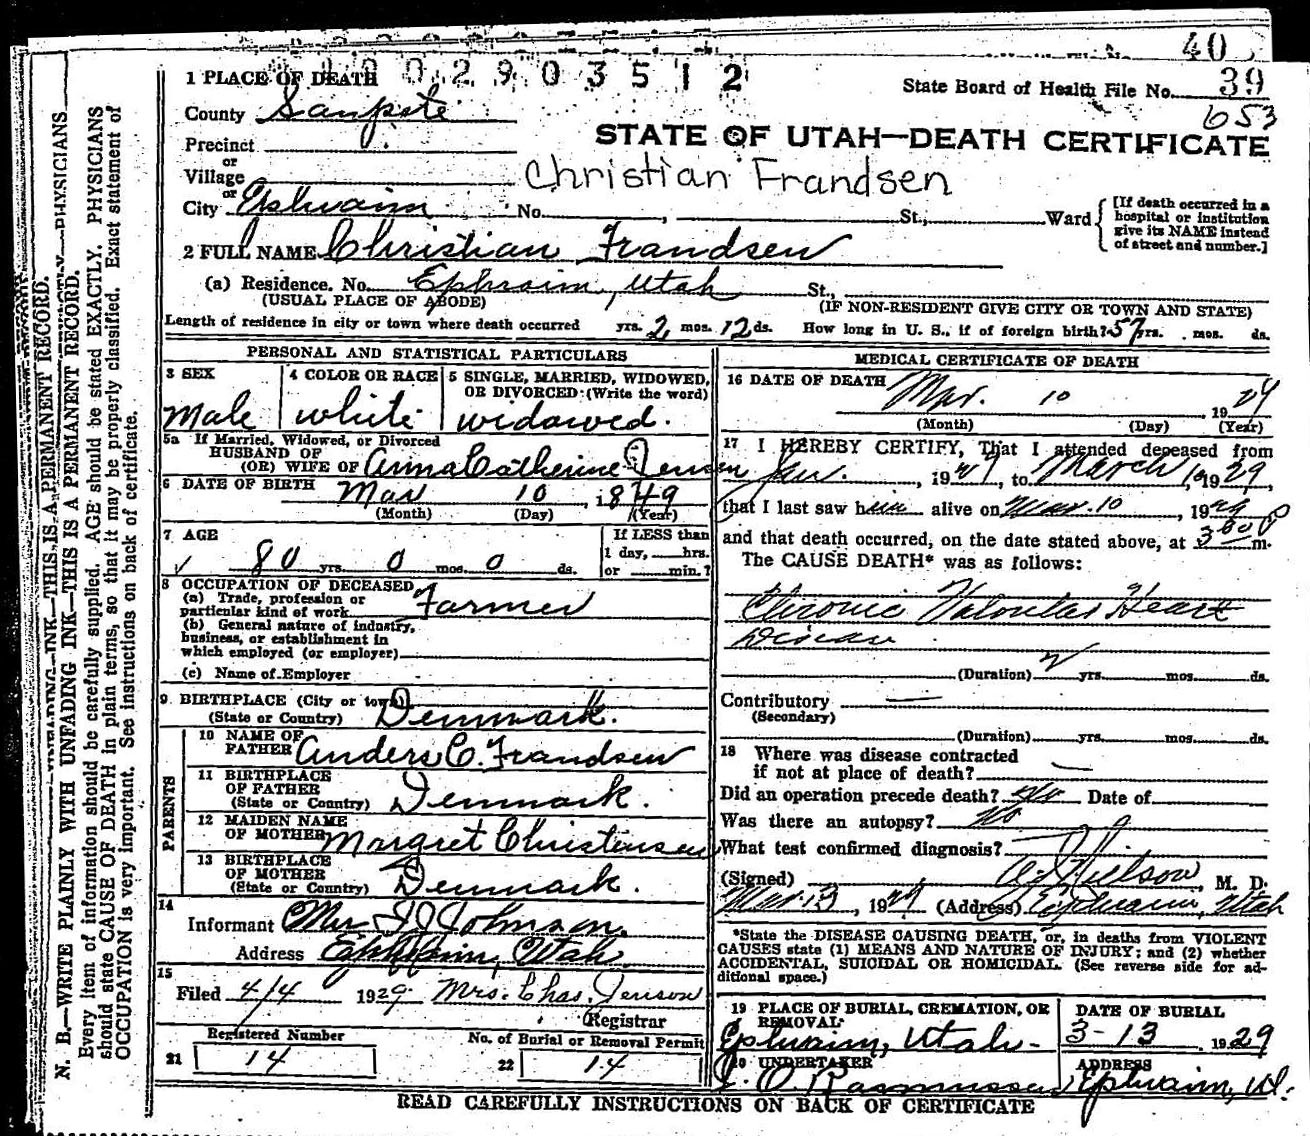 40
1 PLACE OF DEATH 002903512
State Board of Health File No. 39
653
County Sanpete
STATE OF UTAH—DEATH CERTIFICATE
Precinct
or
Village
Christian Frandsen
or
City Ephraim No. , St., Ward
[If death occurred in a hospital or institution give its NAME instead of street and number.]
2 FULL NAME Christian Frandsen
(a) Residence. No. Ephraim, Utah St.,
(USUAL PLACE OF ABODE) (IF NON-RESIDENT GIVE CITY OR TOWN AND STATE)
Length of residence in city or town where death occurred yrs. 2 mos. 12 ds. How long in U. S., if of foreign birth? 57 yrs. mos. ds.
PERSONAL AND STATISTICAL PARTICULARS
3 SEX
Male
4 COLOR OR RACE
white
5 SINGLE, MARRIED, WIDOWED,
OR DIVORCED (Write the word)
widowed.
5a If Married, Widowed, or Divorced
HUSBAND OF
(OR) WIFE OF Anna Catherine Jensen
6 DATE OF BIRTH Mar 10 1849
(Month) (Day) (Year)
7 AGE
80 yrs. 0 mos. 0 ds.
If LESS than
1 day, hrs.
or min.?
8 OCCUPATION OF DECEASED
(a) Trade, profession or
particular kind of work Farmer
(b) General nature of industry,
business, or establishment in
which employed (or employer)
(c) Name of Employer
9 BIRTHPLACE (City or town)
(State or Country) Denmark.
PARENTS
10 NAME OF
FATHER Anders C. Frandsen
11 BIRTHPLACE
OF FATHER
(State or Country) Denmark.
12 MAIDEN NAME
OF MOTHER Margret Christensen
13 BIRTHPLACE
OF MOTHER
(State or Country) Denmark.
14
Informant Johnson.
Address Ephraim, Utah
15
Filed 4/4 1929 Mrs. Chas. Jenson
Registrar
Registered Number
21 14
No. of Burial or Removal Permit
22 14
MEDICAL CERTIFICATE OF DEATH
16 DATE OF DEATH Mar. 10 1929
(Month) (Day) (Year)
17 I HEREBY CERTIFY, That I attended deceased from
Jan. , 19 , to March 10 1929,
that I last saw him alive on Mar. 10 , 1929
and that death occurred, on the date stated above, at 3 P m.
The CAUSE DEATH* was as follows:
Chronic Valvular Heart
Disease
(Duration) yrs. mos. ds.
Contributory —
(Secondary)
(Duration) yrs. mos. ds.
18 Where was disease contracted
if not at place of death? —
Did an operation precede death? No Date of
Was there an autopsy? No
What test confirmed diagnosis?
(Signed) Nielson, M. D.
Mar. 13, 1929 (Address) Ephraim, Utah
*State the DISEASE CAUSING DEATH, or, in deaths from VIOLENT
CAUSES state (1) MEANS AND NATURE OF INJURY; and (2) whether
ACCIDENTAL, SUICIDAL OR HOMICIDAL. (See reverse side for ad-
ditional space.)
19 PLACE OF BURIAL, CREMATION, OR
REMOVAL
Ephraim, Utah -
DATE OF BURIAL
3-13 1929
20 UNDERTAKER
O. Rasmussen
ADDRESS
Ephraim, Ut.
READ CAREFULLY INSTRUCTIONS ON BACK OF CERTIFICATE
N. B.—WRITE PLAINLY WITH UNFADING INK—THIS IS A PERMANENT RECORD.
Every item of information should be carefully supplied. AGE should be stated EXACTLY. PHYSICIANS
should state CAUSE OF DEATH in plain terms, so that it may be properly classified. Exact statement of
OCCUPATION is very important. See instructions on back of certificate.